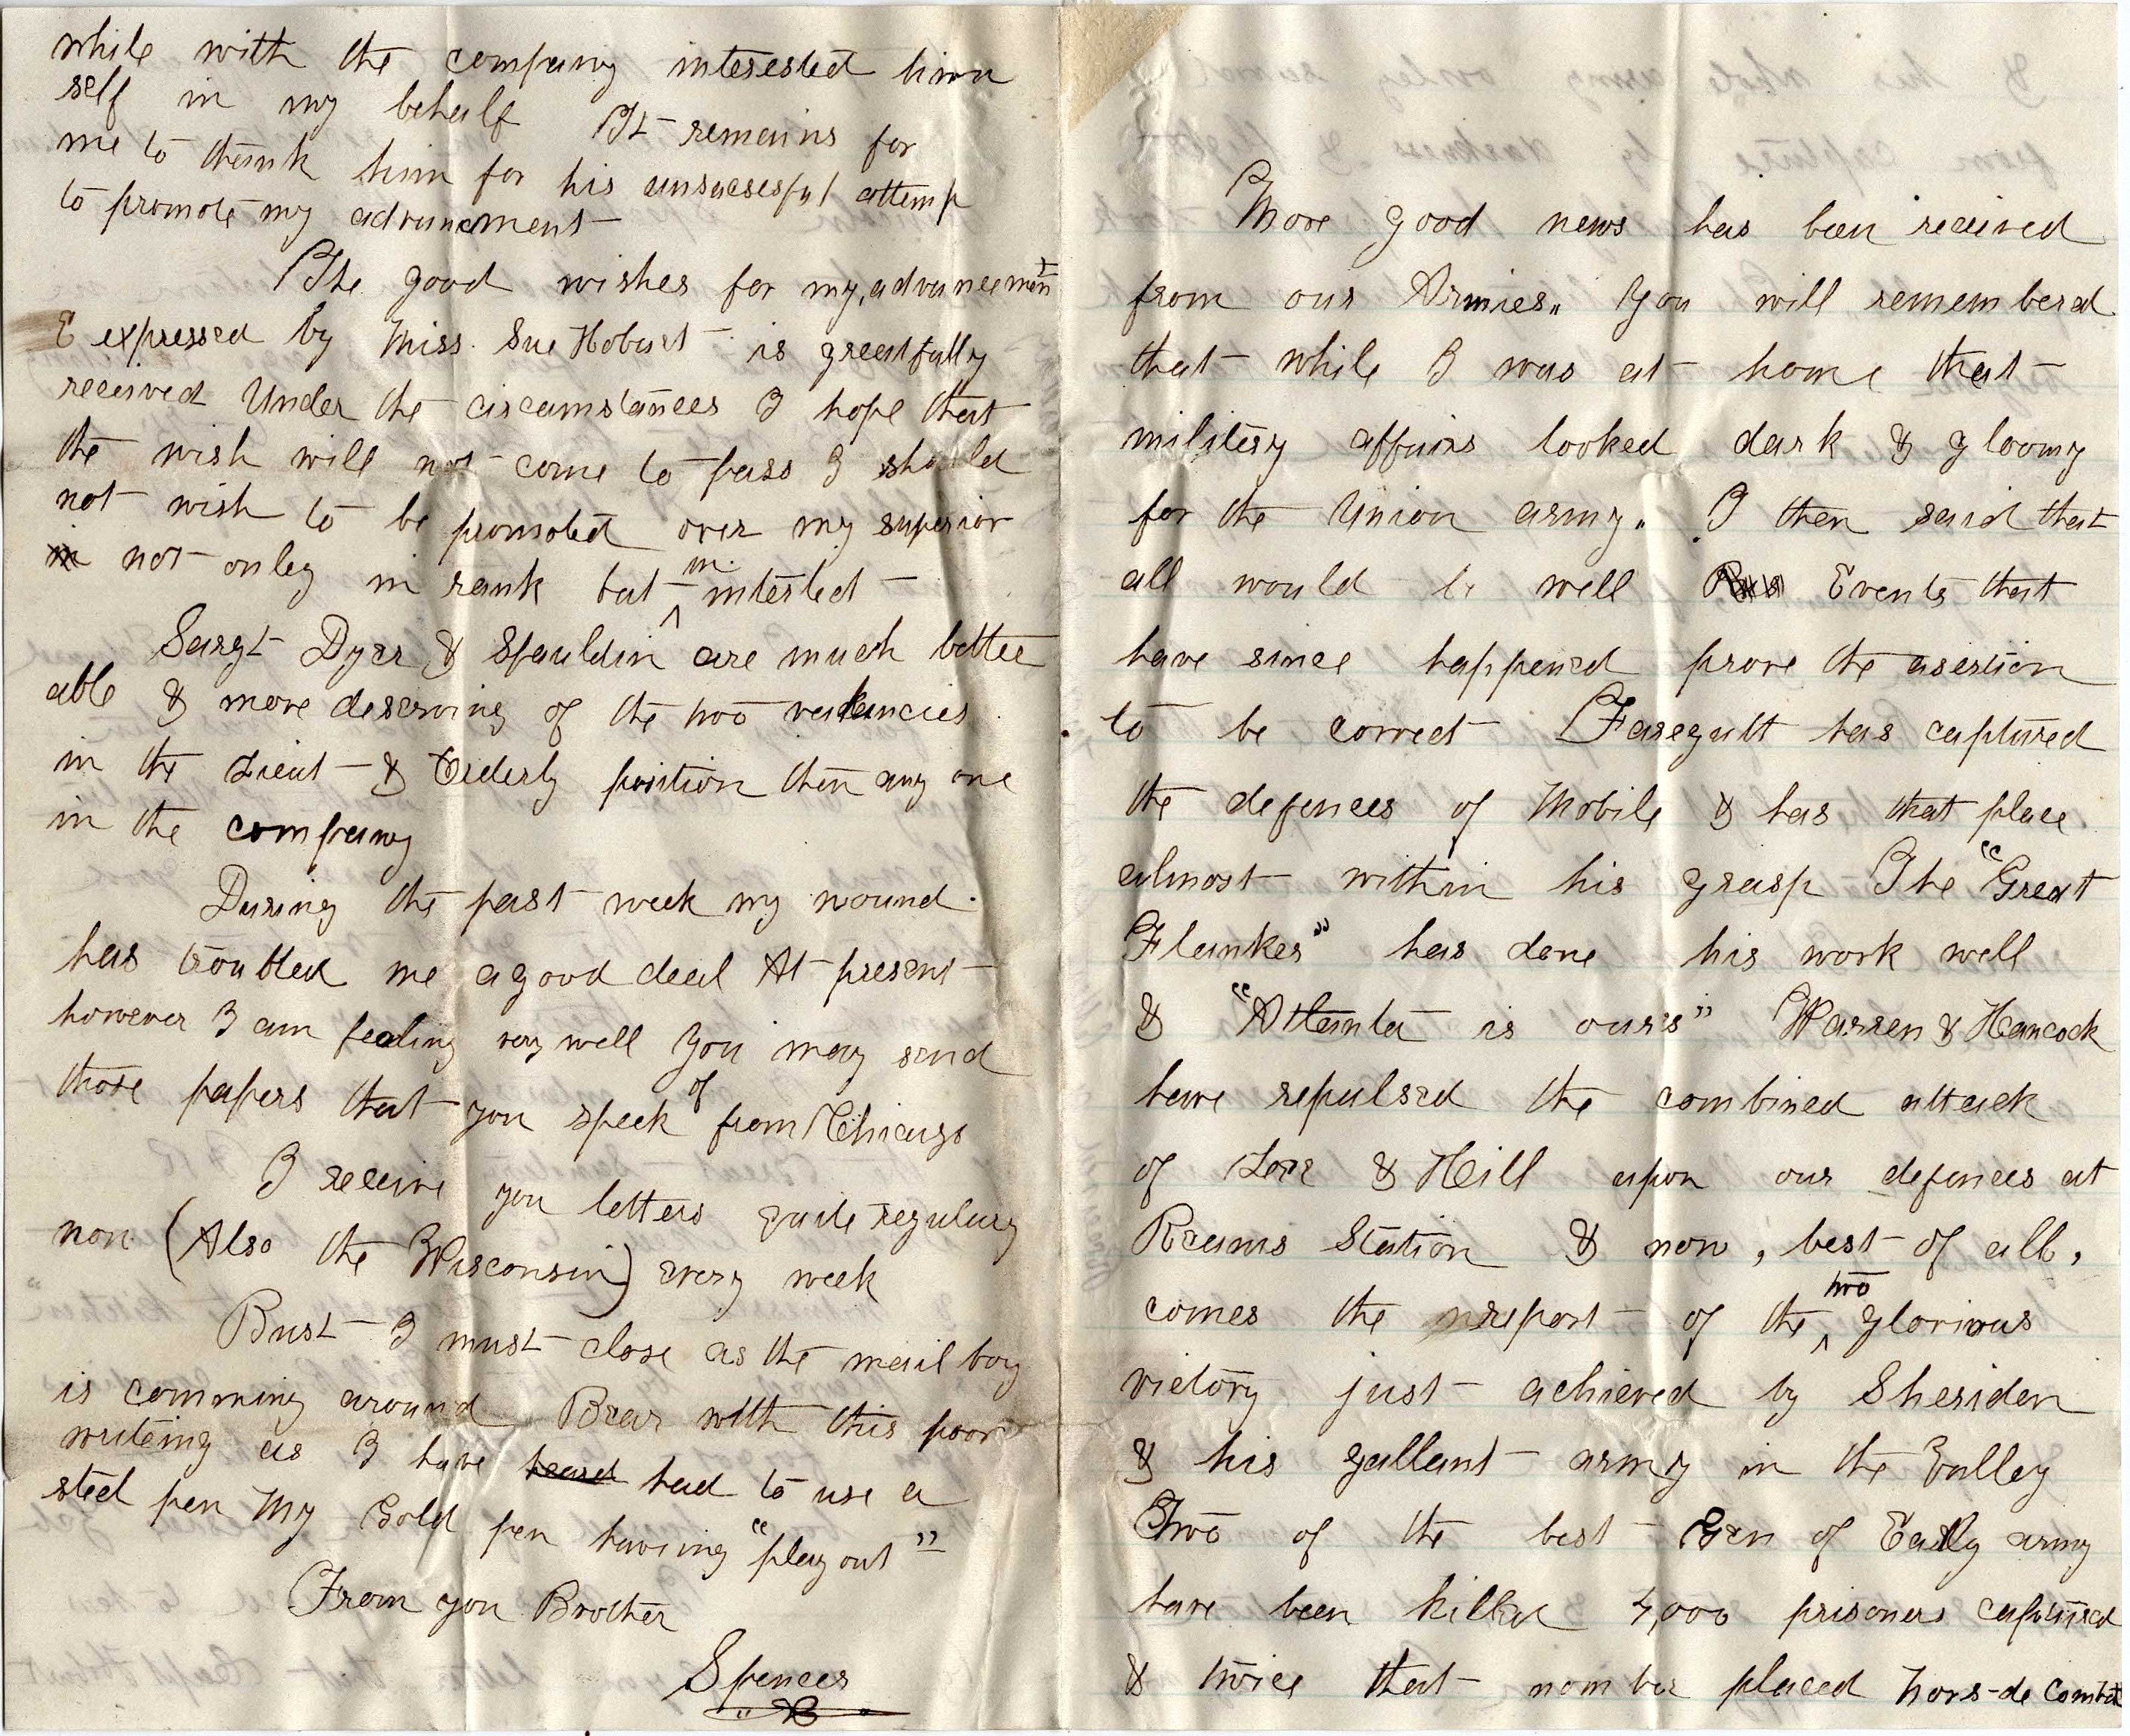 while with the company interested him
self in my behalf It remains for
me to thank him for his unsucsesful attemp
to promote my advancment
The good wishes for my advancement
expressed by Miss. Sue Hobart is greatfully
received Under the circumstances I hope that
the wish will not come to pass I should
not wish to be promoted over my superior
in not onley in rank but in intelect
Sargt Dyer & Spauldin are much better
able & more deserving of the two vackancies
in the Lieut & Orderly position then any one
in the company
During the past week my wound
has troubled me a good deal At present
however I am feeling very well You may send
those papers that you speek of from Chicago
I receive you letters quite regulary
now (Also the Wisconsin) every week
But I must close as the mail boy
is comming around Bear with this poor
writeing as I have heard had to use a
steel pen My Gold pen haveing "play out"
From you Brother
Spencer
More good news has been received
from our Armies. You will rememberd
that while I was at home that
militery affairs looked dark & gloomy
for the Union army. I then said that
all would be well Events that
have since happened prove the asertion
to be correct Faregutt has captured
the defences of Mobile & has that place
almost within his grasp The "Great
Flanker" has done his work well
& "Atlanta is ours" Warren & Hancock
have repulsed the combined attack
of Lee & Hill upon our defences at
Reams Station & now, best of all,
comes the report of the two glorious
victory just achieved by Sheriden
& his gallant army in the Valley
Two of the best Gen of Early army
have been killed 5,000 prisoners captured
& twice that number placed hors-de combat